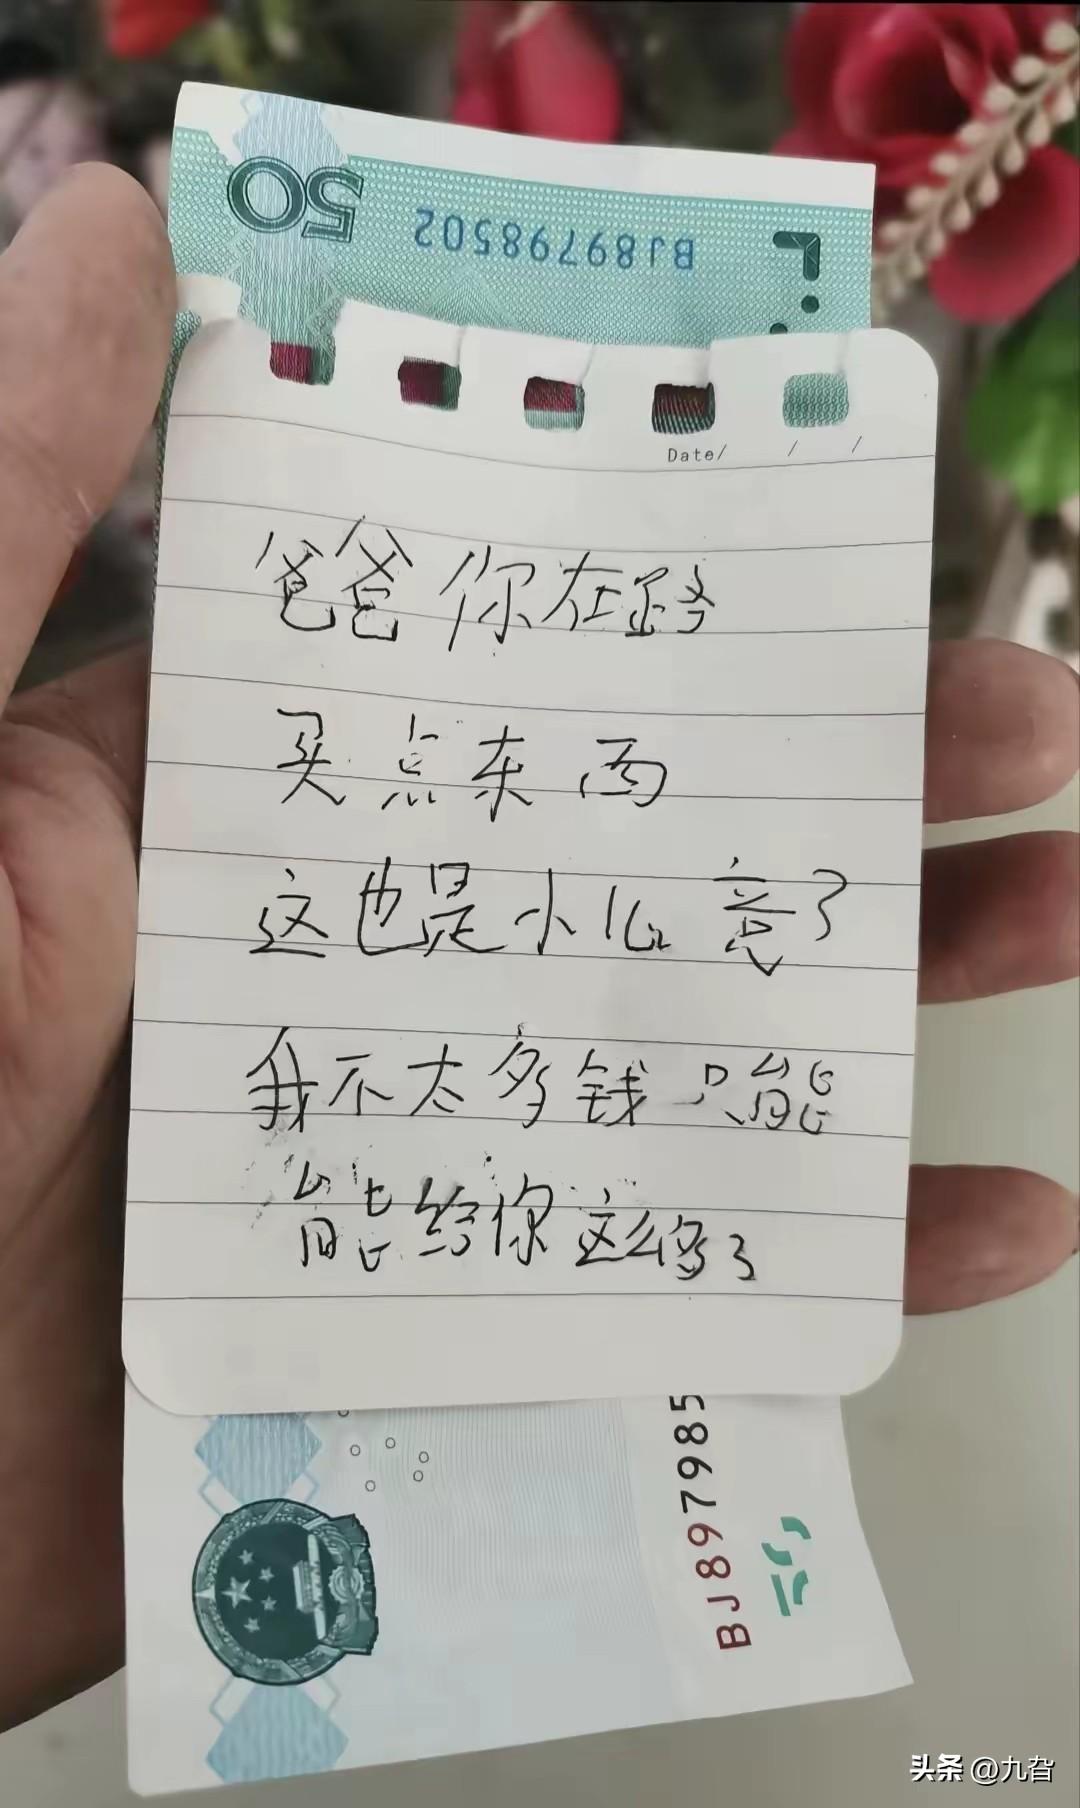 50
BJ89798502
Date/ / /
爸爸你在路
买点东西
这也是小心意了
我不太多钱只能
能给你这么多了
BJ897985
头条 @九旮